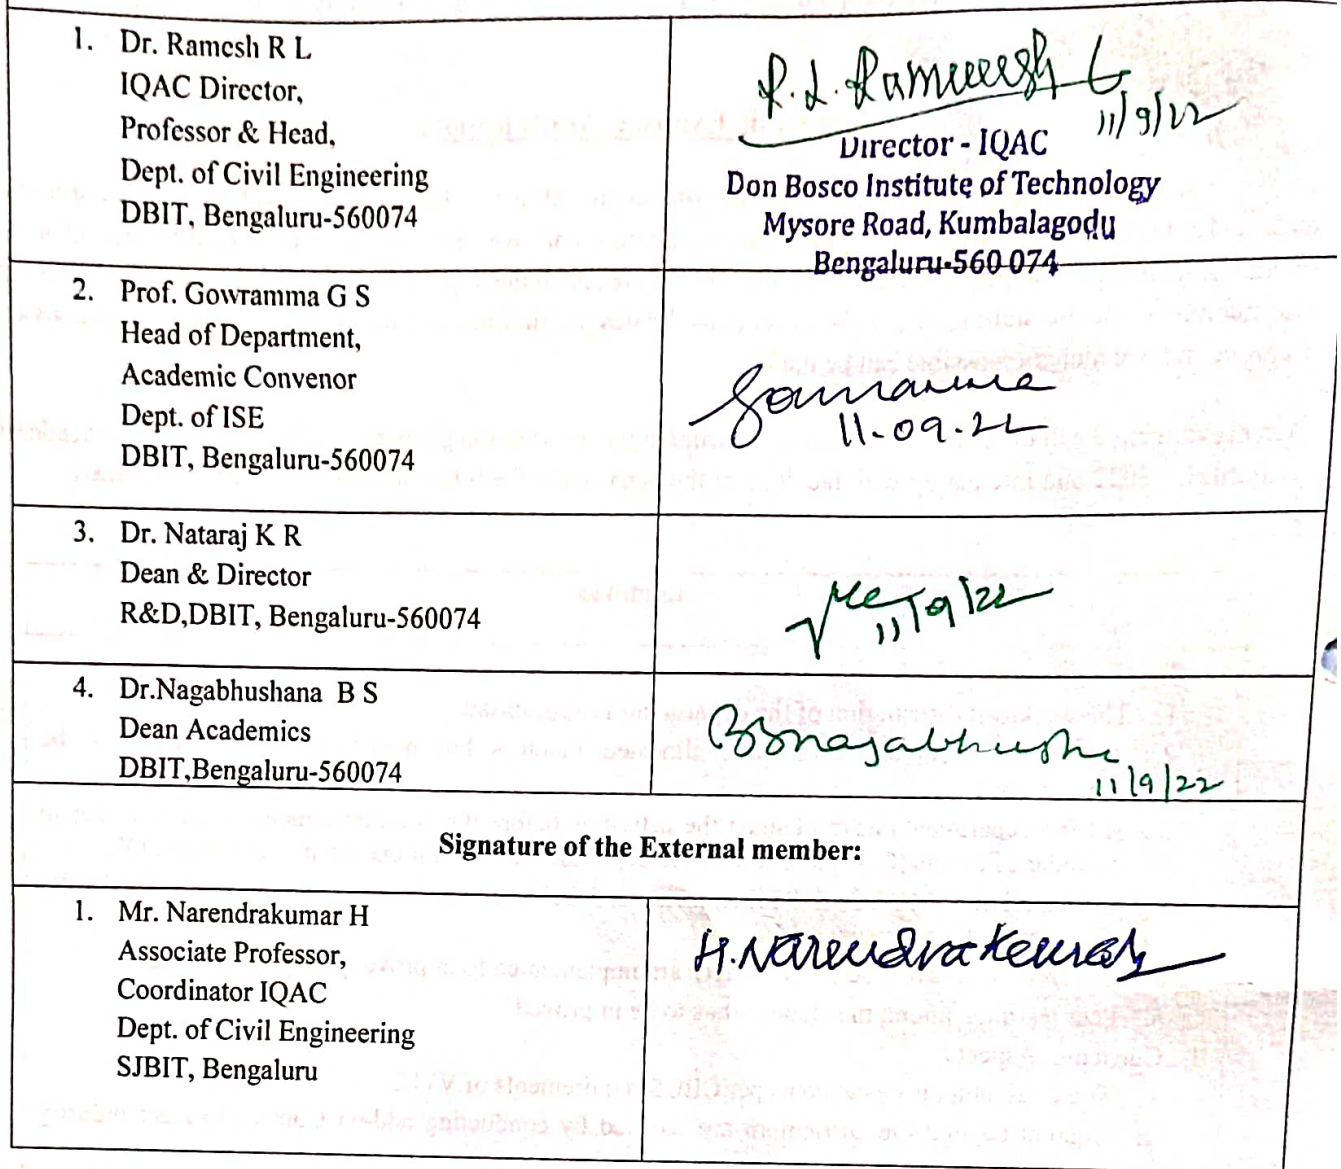 1. Dr. Ramesh R L
IQAC Director,
Professor & Head,
Dept. of Civil Engineering
DBIT, Bengaluru-560074
R. L. Ramesh
11/9/22
Director - IQAC
Don Bosco Institute of Technology
Mysore Road, Kumbalagodu
Bengaluru-560 074
2. Prof. Gowramma G S
Head of Department,
Academic Convenor
Dept. of ISE
DBIT, Bengaluru-560074
Gowramma
11-09-22
3. Dr. Nataraj K R
Dean & Director
R&D,DBIT, Bengaluru-560074
11/9/22
4. Dr.Nagabhushana B S
Dean Academics
DBIT,Bengaluru-560074
BSNagabhusha
11/9/22
Signature of the External member:
1. Mr. Narendrakumar H
Associate Professor,
Coordinator IQAC
Dept. of Civil Engineering
SJBIT, Bengaluru
H. Narendrakumar